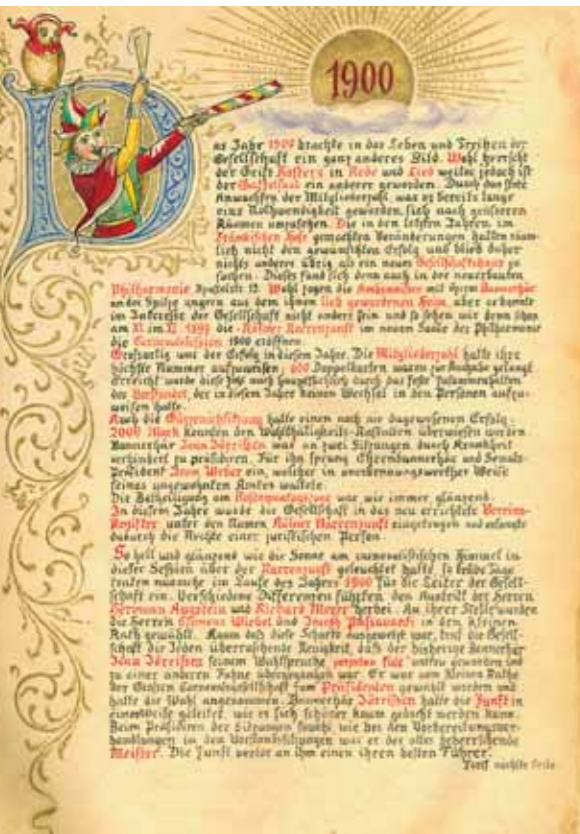 1900
Das Jahr 1900 brachte in das Leben und Treiben der
Gesellschaft ein ganz anderes Bild. Wohl herrscht
der Geist in Rede und Lied weiter, jedoch ist
der ein anderer geworden. Durch das
Anwachsen der Mitgliederzahl, war es bereits lange
eine Nothwendigkeit geworden, sich nach größeren
Räumen umzusehen. Die in den letzten Jahren, im
Fränkischen Hofe gemachten Veränderungen hatten näm-
lich nicht den gewünschten Erfolg und blieb daher
nichts anderes übrig als ein neues
suchen. Dieses fand sich denn auch in der neuerbauten
Philharmonie 13. Wohl zogen die mit ihrem Bannerhär
an der Spitze ungern aus dem ihnen lieb gewordenen Heim, aber es konnte
im Interesse der Gesellschaft nicht anders sein und so sehen wir denn schon
am im 1899 die Kölner Narrenzunft im neuen Saale der Philharmonie
die Carnevalssession 1900 eröffnen.
Großartig war der Erfolg in diesem Jahre. Die Mitgliederzahl hatte ihre
höchste Nummer aufzuweisen; 600 Doppelkarten waren zur Ausgabe gelangt.
Erreicht wurde diese hauptsächlich durch das feste Zusammenhalten
des der in diesem Jahre keinen Wechsel in den Personen aufzu-
weisen hatte.
Auch die hatte einen noch nie dagewesenen Erfolg.
2000 Mark konnten den überwiesen werden.
Bannerhär Jean Jörrißen war an zwei Sitzungen durch Krankheit
verhindert zu präsidiren. Für ihn sprang Ehrenbannerhär und Senats-
Präsident Jean Weber ein, welcher in anerkennungswerther Weise
seines ungewohnten Amtes waltete.
Die Betheiligung am Rosenmontagszuge war wie immer glänzend.
In diesem Jahre wurde die Gesellschaft in das neu errichtete Vereins-
Register unter den Namen Kölner Narrenzunft eingetragen und erlangte
dadurch die Rechte einer juristischen Person.
So hell und glänzend wie die Sonne am carnevalistischen Himmel in
dieser Session über der Narrenzunft geleuchtet hatte, so trübe Tage
traten manche im Laufe des Jahres 1900 für die Leiter der Gesell-
schaft ein. Verschiedene Differenzen führten den Austritt der Herren
Hermann und Richard Meyer herbei. An ihrer Stelle wurden
die Herren Clemens Wiebel und Joseph in den kleinen
Rath gewählt. Kaum daß diese Scharte ausgewetzt war, traf die Gesell-
schaft die Jeden überraschende Neuigkeit, daß der bisherige Bannerhär
Jean Jörrißen seinem Wahlspruche untreu geworden und
zu einer anderen Fahne übergegangen war. Er war vom kleinen Rathe
der Großen Carnevalsgesellschaft zum Präsidenten gewählt worden und
hatte die Wahl angenommen. Bannerhär Jörrißen hatte die Zunft in
einer Weise geleitet, wie es sich schöner kaum gedacht werden kann.
Beim Präsidiren der Sitzungen sowohl wie bei den Vorbereitungsver-
handlungen in den Vorstandssitzungen war er der alles beherrschende
Meister. Die Zunft verlor an ihm einen ihren besten Führer.
nächste Seite